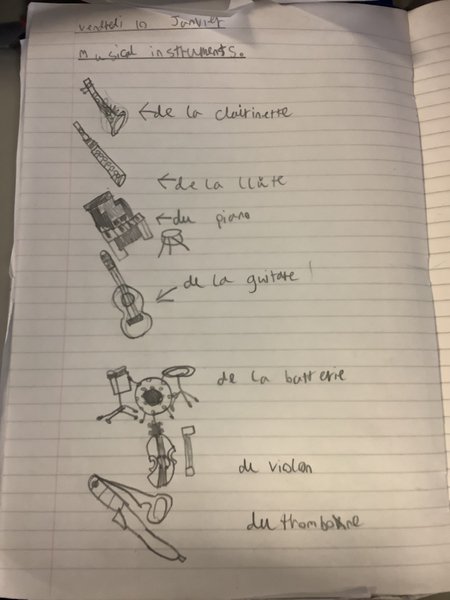 vendredi 10 Janvier
Musical instruments.
←de la clairinette
←de la llûte
←du piano
←de la guitare!
de la batterie
du violon
du thombone